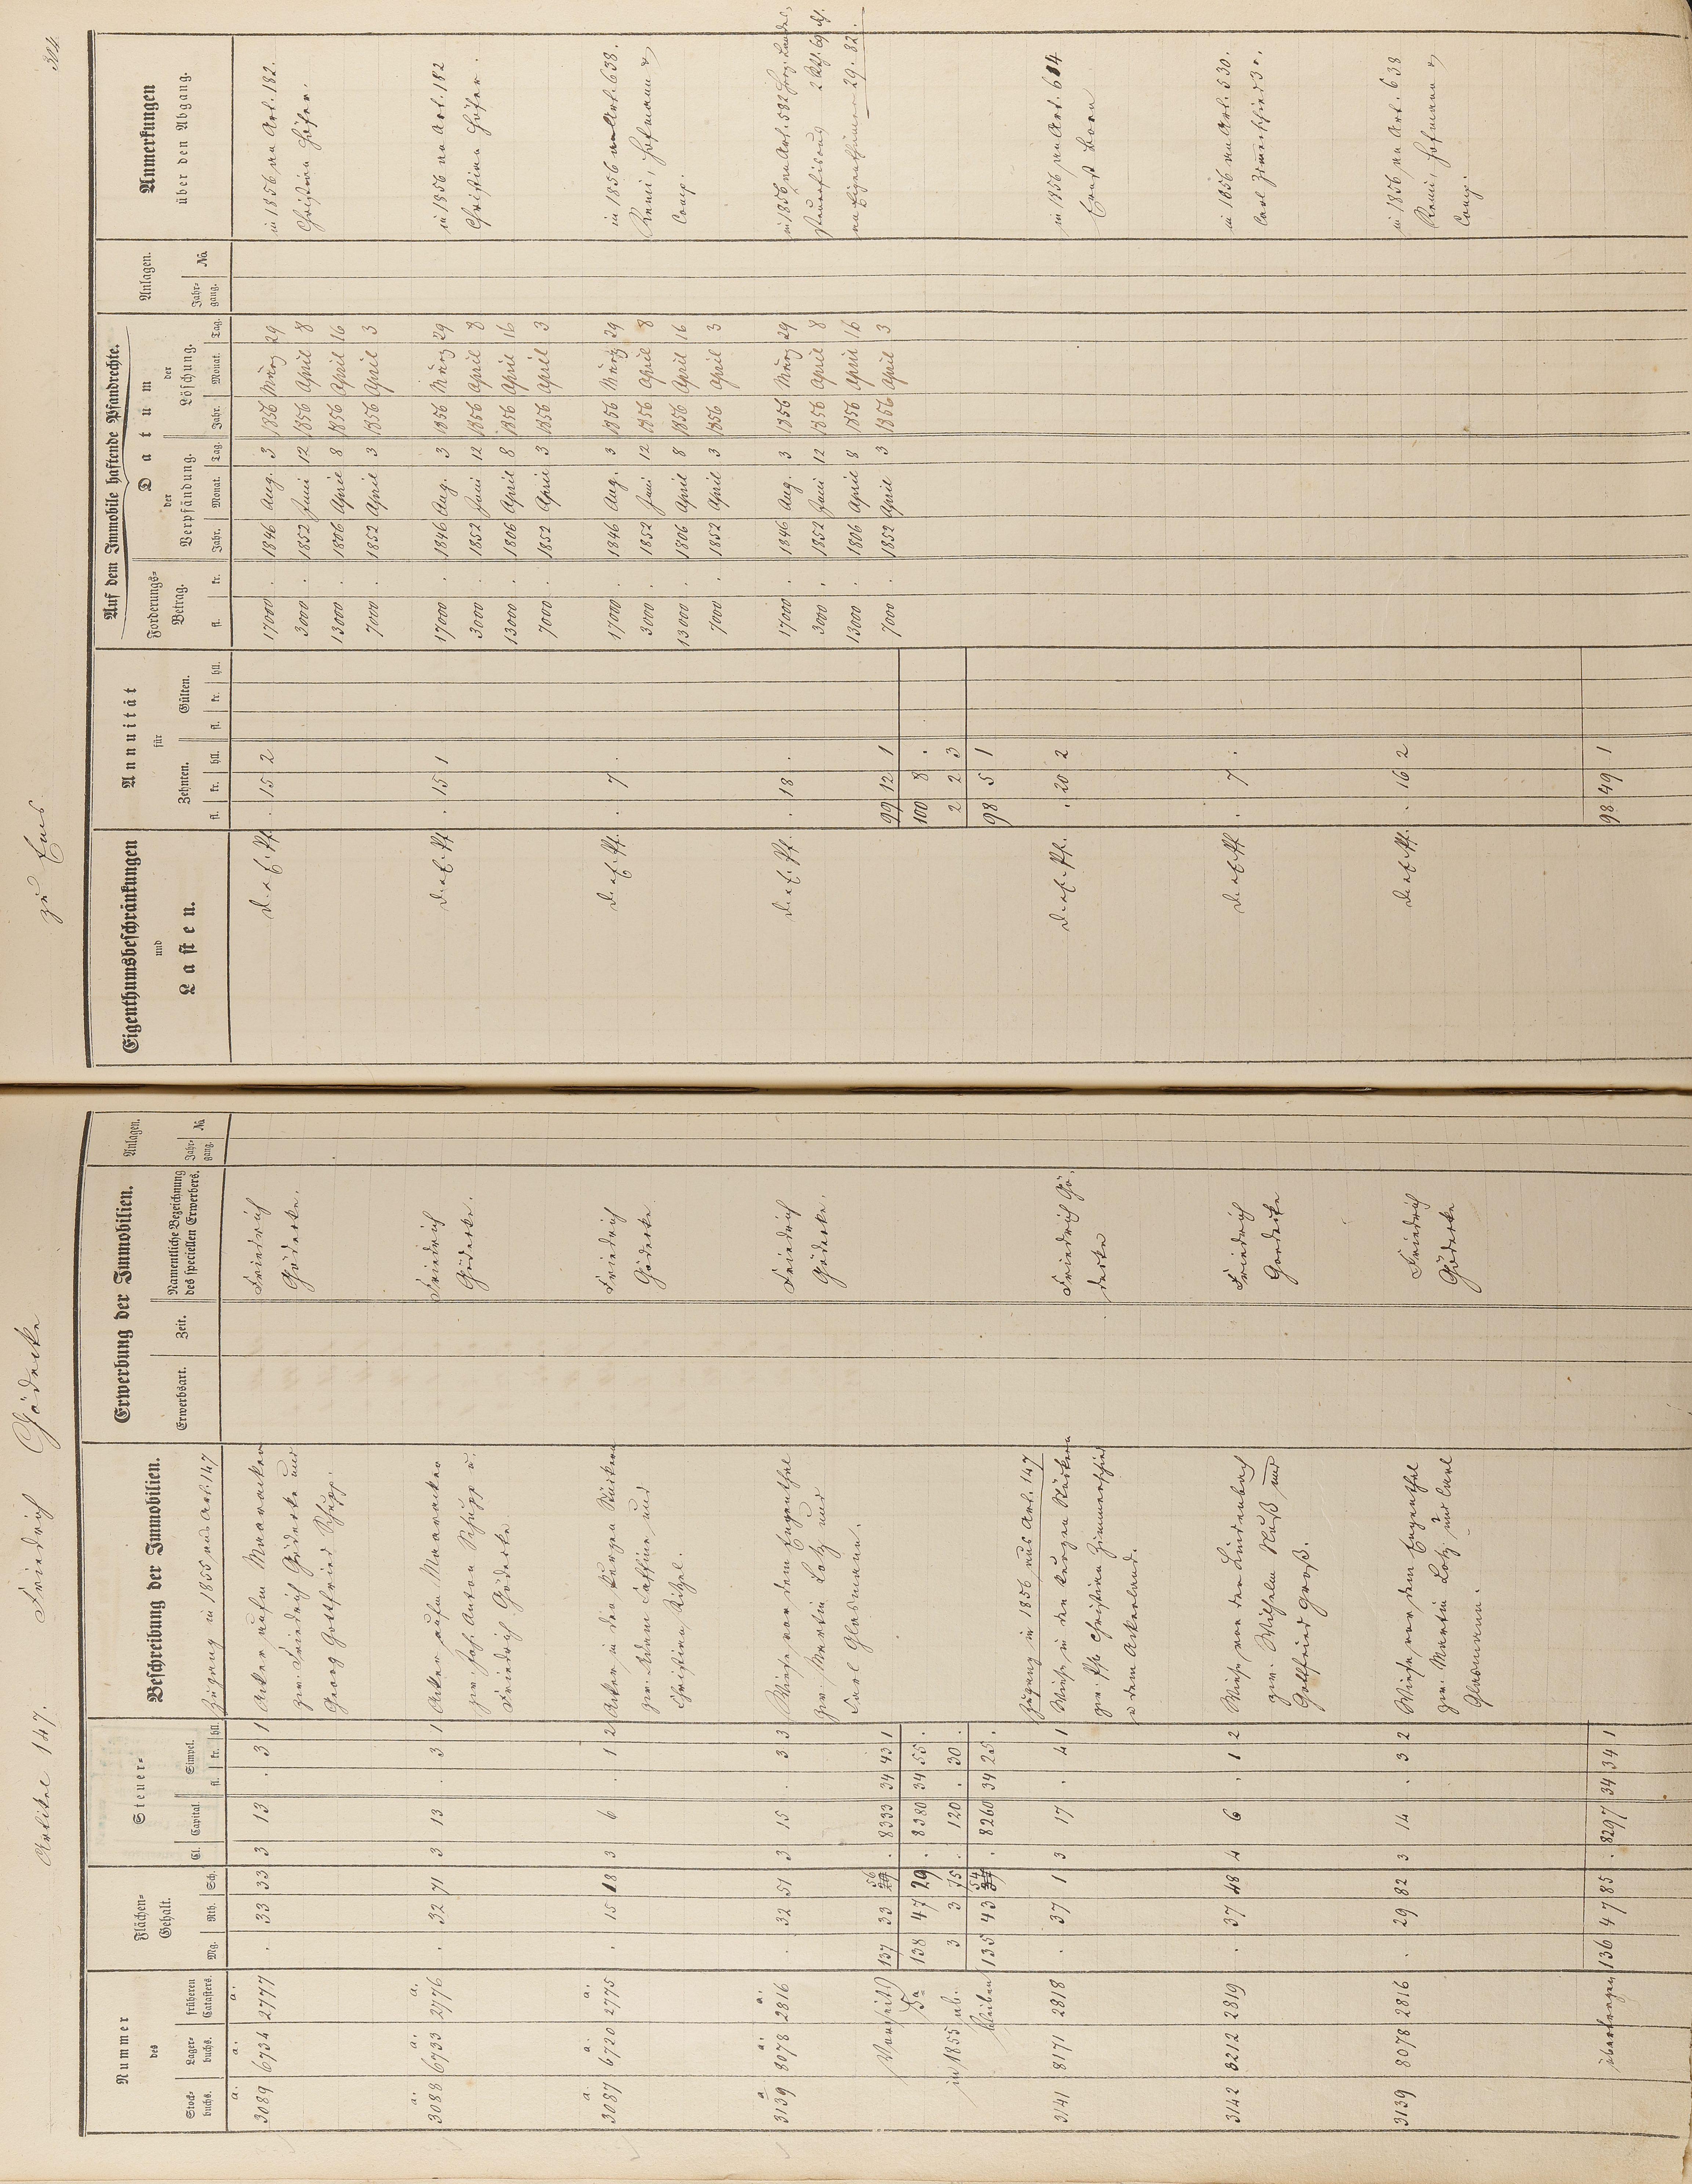 Artikel 147. Friedrich Gödecke
zu Ems
304.
Nummer des
Stockbuchs. Lagerbuchs. früheren Catasters.
Flächen-Gehalt.
Mg. Rth. Sch.
Steuer-
Cl. Capital. Simpel.
fl. kr. hll.
Beschreibung der Immobilien.
Erwerbung der Immobilien.
Erwerbsart. Zeit. Namentliche Bezeichnung des speciellen Erwerbers.
Anlagen.
Jahrgang. №
Eigenthumsbeschränkungen und Lasten.
Annuität für
Zehnten. Gülten.
fl. kr. hll. fl. kr. hll.
Auf dem Immobile haftende Pfandrechte.
Forderungs-Betrag.
fl. kr.
Datum
der Verpfändung. der Löschung.
Jahr. Monat. Tag. Jahr. Monat. Tag.
Anlagen.
Jahrgang. №
Anmerkungen über den Abgang.
Zugang in 1855 aus Art. 147
a. a. a.
3089 6734 2777 . 33 33 3 13 . 3 1 Acker aufm Maaracker Friedrich . 15 2 17000 . 1846 Aug. 3 1856 März 29 in 1856 an Art. 182.
zw. Friedrich Gödecke und Gödecke. 3000 . 1852 Juni 12 1856 April 8 Christian Höfer.
Georg Gottfried Schupp. 13000 . 1806 April 8 1856 April 16
7000 . 1852 April 3 1856 April 3
a. a. a.
3088 6733 2776 . 32 71 3 13 . 3 1 Acker aufm Maaracker Friedrich . 15 1 17000 . 1846 Aug. 3 1856 März 29 in 1856 an Art. 182
zw. Joh. Anton Schupp u. Gödecke. 3000 . 1852 Juni 12 1856 April 8 Christian Höfer.
Friedrich Gödecke 13000 . 1806 April 8 1856 April 16
7000 . 1852 April 3 1856 April 3
a. a. a.
3087 6720 2775 . 15 18 3 6 . 1 2 Acker in den kurzen Stücken Friedrich . 7 . 17000 . 1846 Aug. 3 1856 März 29 in 1856 an Art. 638.
zw. Adam und Gödecke 3000 . 1852 Juni 12 1856 April 8 Remi, Hofmann &
Christian 13000 . 1806 April 8 1856 April 16 Comp.
7000 . 1852 April 3 1856 April 3
a a. a.
3139 8078 2816 . 32 51 3 15 . 3 3 Wiese vor dem Engenthal Friedrich . 18 . 17000 . 1846 Aug. 3 1856 März 29 in 1856 an Art. 582
zw. Martin Lotz und Gödecke. 3000 . 1852 Juni 12 1856 April 8
Carl Glasmann. 13000 . 1806 April 8 1856 April 16 29. 82.
7000 . 1852 April 3 1856 April 3
137 33 56 . 8333 34 43 1 99 12 1
138 47 29 . 8380 34 55 . 100 8 .
in 1855 ab. 3 3 75 . 120 . 30 . 2 2 3
bleiben 135 43 54 . 8260 34 25 . 98 5 1
Zugang in 1856 aus Art. 147
3141 8171 2818 . 37 1 3 17 . 4 1 Wiese in den kurzen Stücken Friedrich Gö- . 20 2 in 1856 an Art. 614
zw. Christian Zimmerschied decke Ernst Born
u dem Ackerland.
3142 8212 2819 . 37 48 4 6 . 1 2 Wiese vor der Lindenbach Friedrich . 7 . in 1856 an Art. 530.
zw. Wilhelm Nuß und Goedecke Carl Zimmerschied 3r.
Gottfried Groß.
3139 8078 2816 . 29 82 3 14 . 3 2 Wiese vor dem Engenthal Friedrich . 16 2 in 1856 an Art. 638
zw. Martin Lotz und Carl Gödecke Remi, Hofmann &
Glasmann. Comp.
übertragen 136 47 85 . 8297 34 34 1 98 49 1